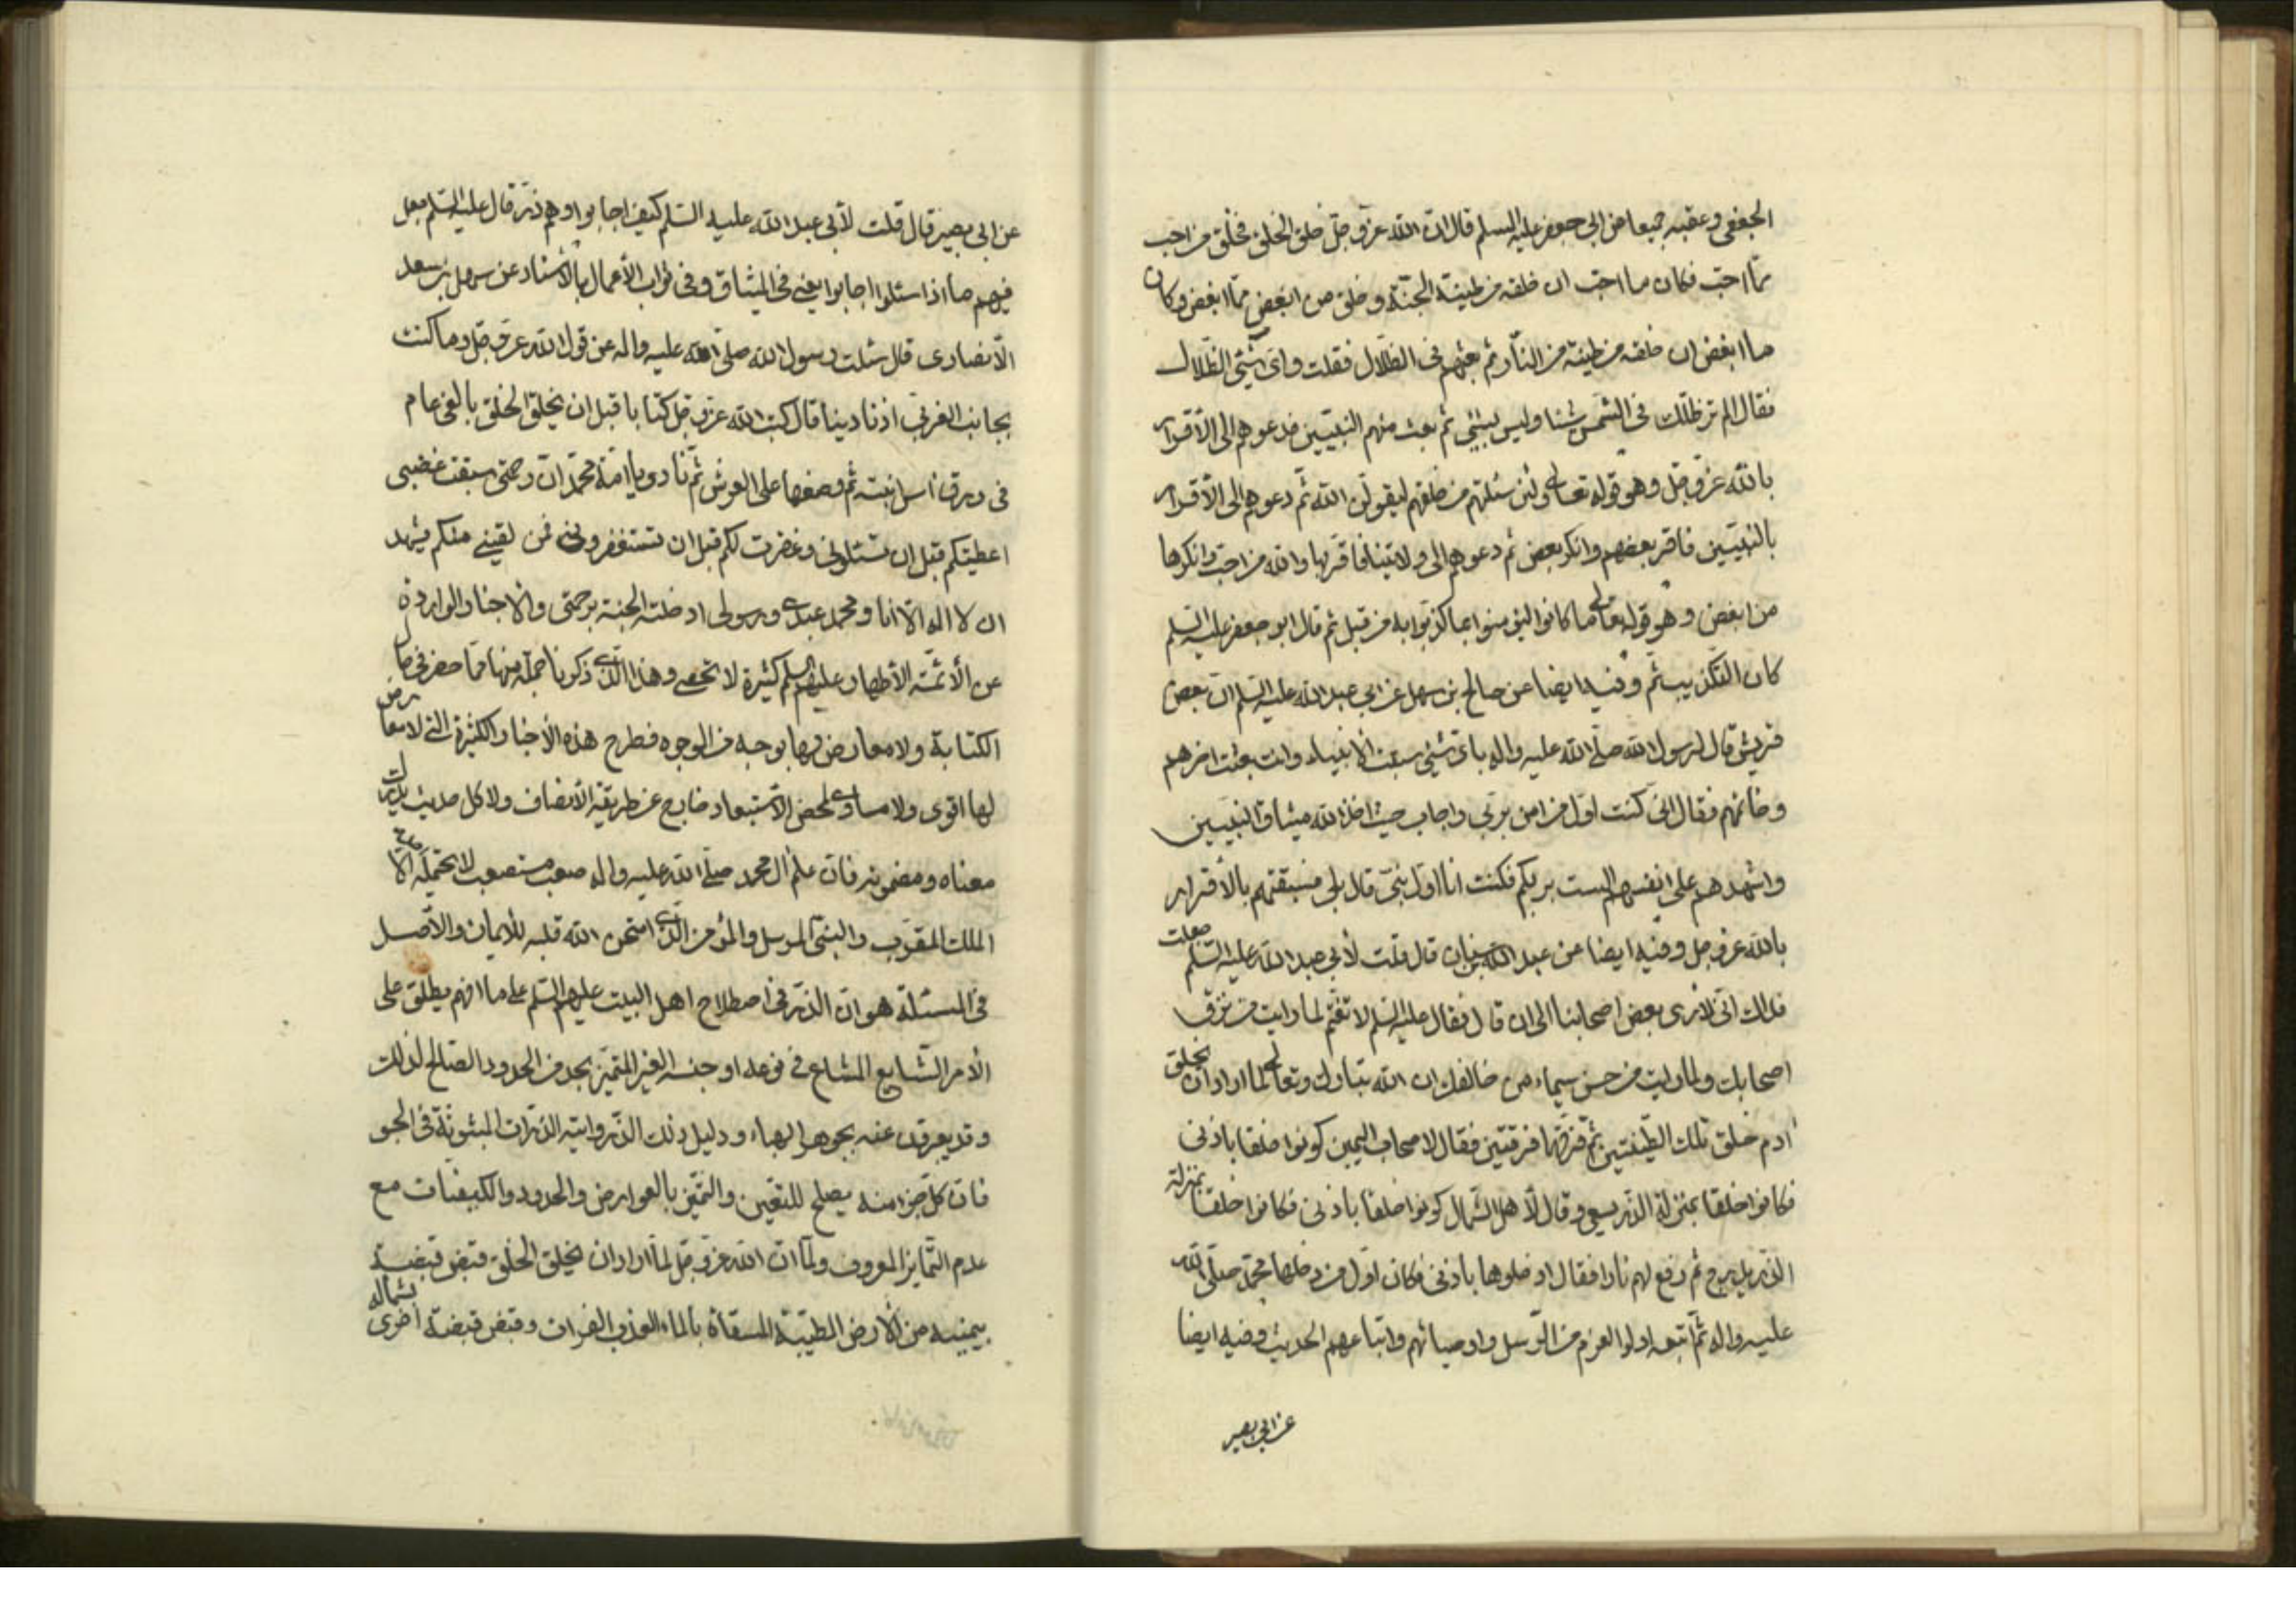 الجعفى وعقبه جميعا عن ابى جعفر عليه السلم قال ان الله عز وجل خلق الخلق فخلق من احب
مما احب فكان ما احب ان خلقه من طينة الجنة وخلق من ابغض مما ابغض وكان
ما ابغض ان خلقه من طينة من النار ثم بعثهم فى الظلال فقلت واى شيئ الظلال
فقال الم تر ظلك فى الشمس شيئا وليس بشيئ ثم بعث منهم النبيين فدعوهم الى الأقرار
بالله عز وجل وهو قوله تعالى ولئن سئلتهم من خلقهم ليقولن الله ثم دعوهم الى الأقرار
بالنبيين فاقر بعضهم وانكر بعض ثم دعوهم الى ولايتنا فاقر بها والله من احب وانكرها
من ابغض وهو قوله تعالى ما كانوا ليؤمنوا بما كذبوا به من قبل ثم قال ابو جعفر عليه السلم
كان التكذيب ثم وفيه ايضا عن صالح بن سهل عن ابى عبد الله عليه السلم ان بعض
قريش قال لرسول الله صلى الله عليه واله باى شيئ سبقت الانبياء وانت بعثت اخرهم
وخاتمهم فقال انى كنت اول من امن بربى واجاب حيث اخذ الله ميثاق النبيين
واشهدهم على انفسهم الست بربكم فكنت انا اول نبى قال بلى فسبقتهم بالأقرار
بالله عز وجل وفيه ايضا عن عبد الله بن سنان قال قلت لأبى عبد الله عليه السلم جعلت
فداك انى لارى بعض اصحابنا الى ان قال فقال عليه السلم لا تغتم لما رايت من نزق
اصحابك ولما رايت من حسن سيماء من خالفك ان الله تبارك وتعالى لما اراد ان يخلق
ادم خلق تلك الطينتين ثم فرقهما فرقتين فقال لاصحاب اليمين كونوا خلقا باذنى
فكانوا خلقا بمنزلة الذر يسعى وقال لأهل الشمال كونوا خلقا باذنى فكانوا خلقا بمنزلة
الذر يدرج ثم رفع لهم نارا فقال ادخلوها باذنى فكان اول من دخلها محمد صلى الله
عليه واله ثم اتبعه اولوا العزم من الرسل واوصيائهم واتباعهم الحديث وفيه ايضا
عن ابى بصير
عن ابى بصير قال قلت لأبى عبد الله عليه السلم كيف اجابوا وهم ذر قال عليه السلم جعل
فيهم ما اذا سئلوا اجابوا يعنى فى الميثاق وفى ثواب الأعمال بالأسناد عن سهل بن سعد
الأنصارى قال سئلت رسول الله صلى الله عليه واله عن قول الله عز وجل وما كنت
بجانب الغربى اذ نادينا قال كتب الله عز وجل كتابا قبل ان يخلق الخلق بالفى عام
فى ورق اس انبته ثم وضعها على العرش ثم نادى يا امة محمد ان رحمتى سبقت غضبى
اعطيتكم قبل ان تسئلونى وغفرت لكم قبل ان تستغفرونى فمن لقينى منكم يشهد
ان لا اله الا انا ومحمد عبدى ورسولى ادخلته الجنة برحمتى والاخبار الواردة
عن الأئمة الأطهار عليهم السلم كثيرة لا تحصى وهذا الذى ذكرنا جملة منها مما حضر فى حال
الكتابة ولا معارض لها بوجه من الوجوه فطرح هذه الأخبار الكثيرة التى لا معارض
لها اقوى ولا مساوى لمحض الاستبعاد خارج عن طريقة الأنصاف ولا كل حديث يدرك
معناه ومضمونه فان علم ال محمد صلى الله عليه واله صعب مستصعب لا يحتمله الا
الملك المقرب والنبى المرسل والمؤمن الذى امتحن الله قلبه للأيمان والأصل
فى المسئلة هو ان الذر فى اصطلاح اهل البيت عليهم السلم على ما افهم يطلق على
الأمر الشايع المشاع فى نوعه او جنسه الغير المتميز بحد من الحدود الصالح لذلك
وقد يعبرون عنه بجوهر الهباء ودليل ذلك الذر واية الذرات المبثوثة فى الجو
فان كل جزء منه يصلح للتعين والتميز بالعوارض والحدود والكيفيات مع
عدم التمايز المعروف ولما ان الله عز وجل لما اراد ان يخلق الخلق قبض قبضة
بيمينه من الأرض الطيبة المسقاة بالماء العذب الفرات وقبض قبضة اخرى بشماله